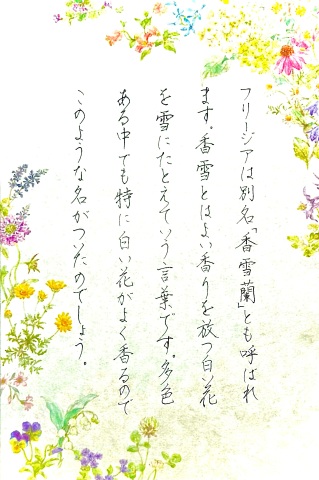 フリージアは別名「香雪蘭」とも呼ばれ
ます。香雪とはよい香りを放つ白い花
を雪にたとえていう言葉です。多色
ある中でも特に白い花がよく香るので
このような名がついたのでしょう。